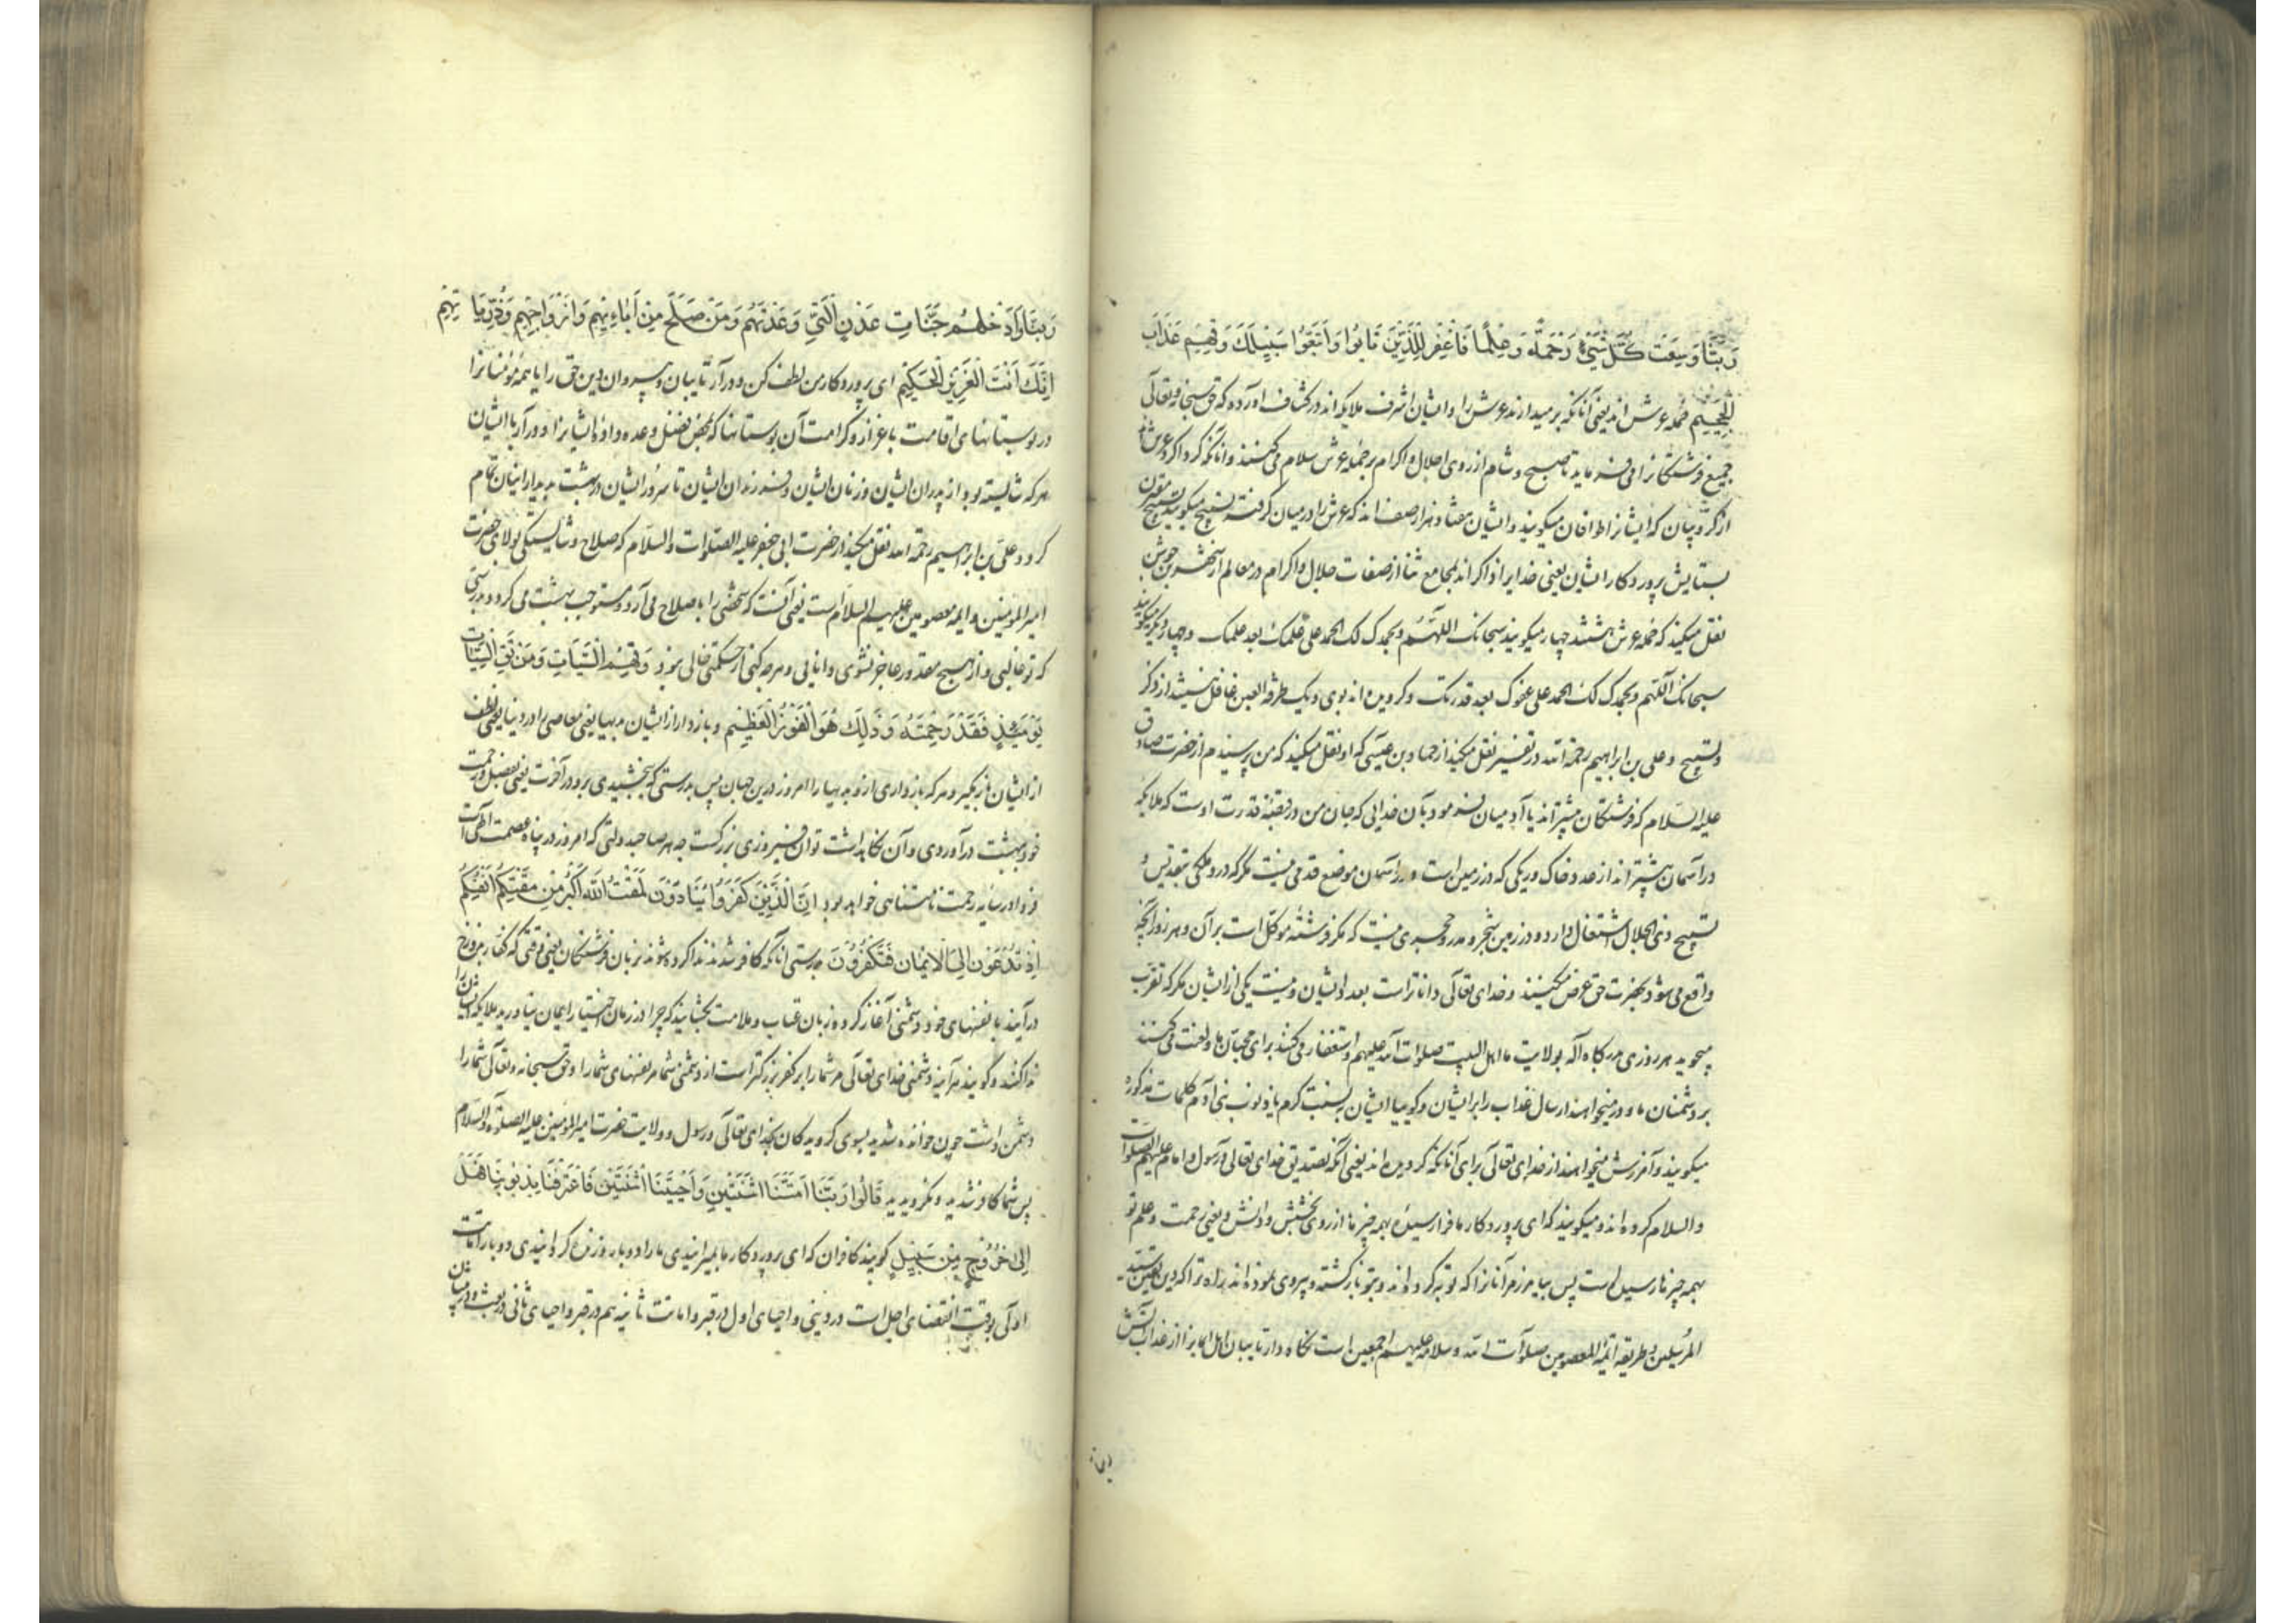 رَبَّنَا وَسِعْتَ كُلَّ شَيْءٍ رَحْمَةً وَعِلْمًا فَاغْفِرْ لِلَّذِينَ تَابُوا وَاتَّبَعُوا سَبِيلَكَ وَقِهِمْ عَذَابَ
الْجَحِيمِ حمله عرش اند یعنی آنانکه برمیدارند عرش را و ایشان اشرف ملایکه اند در کشاف آورده که حق سبحانه و تعالی
جمیع فرشتگانرا می فرماید تا صبح و شام از روی اجلال و اکرام بر حمله عرش سلام می کنند و آنانکه گرداگرد عرش اند
از کروبیان که ایشانرا طوافان میگویند و ایشان هفتاد هزار صف اند که عرش را در میان گرفته تسبیح میگویند تسبیح مقترن
بستایش پروردگار ایشان یعنی خدایرا ذاکر اند بمجامع ثنا از صفات جلال و اکرام در معالم از شهر بن حوشب
نقل میکند که حمله عرش هشتند چهار میگویند سبحانک اللهم وبحمدک لک الحمد علی حلمک بعد علمک و چهار دیگر میگویند
سبحانک اللهم وبحمدک لک الحمد علی عفوک بعد قدرتک و گرویده اند بوی و یک طرفة العین غافل نیستند از ذکر
و تسبیح و علی بن ابراهیم رحمة الله در تفسیر نقل میکند از حماد بن عیسی که او نقل میکند که من پرسیدم از حضرت صادق
علیه السلام که فرشتگان بیشترند یا آدمیان فرمود بآن خدایی که جان من در قبضه قدرت اوست که ملایکه
در آسمان بیشتر اند از عدد خاک و ریگی که در زمین است و در آسمان موضع قدمی نیست مگر که در و ملکی بتقدیس و
تسبیح ذی الجلال اشتغال دارد و در زمین شجر و مدر و حجری نیست که مگر فرشته موکل است بر آن و هر روز آنچه
واقع می شود بحضرت حق عرض میکنند و خدای تعالی داناتر است بعدد ایشان و نیست یکی از ایشان مگر که تقرب
میجوید هر روزی بدرگاه اله بولایت ما اهل البیت صلوات الله علیهم و استغفار می کنند برای محبان ما و لعنت می کنند
بر دشمنان ما و در میخواهند ارسال عذاب را بر ایشان و گویا ایشان بسنت کرم یاد ذنوب بنی آدم کلمات مذکوره
میگویند و آمرزش میخواهند از خدای تعالی برای آنانکه گرویده اند یعنی آنکه تصدیق خدای تعالی و رسول و امام علیهم الصلوات
والسلام کرده اند و میگویند که ای پروردگار ما فرا رسیده بهمه چیز ما از روی بخشش و دانش و یعنی رحمت و علم تو
بهمه چیز ما رسیده است پس بیامرز مر آنانرا که توبه کرده اند و بتو بازگشته و پیروی نموده اند راه ترا که دین سید
المرسلین و طریقه ائمه المعصومین صلوات الله وسلامه علیهم اجمعین است نگاه دار تایبان اهل ایمانرا از عذاب آتش
رَبَّنَا وَأَدْخِلْهُمْ جَنَّاتِ عَدْنٍ الَّتِي وَعَدْتَهُمْ وَمَنْ صَلَحَ مِنْ آبَائِهِمْ وَأَزْوَاجِهِمْ وَذُرِّيَّاتِهِمْ
إِنَّكَ أَنْتَ الْعَزِيزُ الْحَكِيمُ ای پروردگار من لطف کن و در آر تایبان و پیروان دین حق را با همه مؤمنانرا
در بوستانهای اقامت با عزاز و کرامت آن بوستانها که بمحض فضل وعده داده ایشانرا و در آر با ایشان
هر که شایسته بود از پدران ایشان و زنان ایشان و فرزندان ایشان تا سرور ایشان در بهشت بدیدار اینان تمام
گردد و علی بن ابراهیم رحمة الله نقل میکند از حضرت ابی جعفر علیه الصلوات والسلام که صلاح و شایستگی بولای حضرت
امیر المومنین و ایمه معصومین علیهم السلام است یعنی آنست که شخصی را با صلاح می آرد و مستوجب بهشت می گردد بدرستی
که تو غالبی و از هیچ مقدور عاجز نشوی و دانایی و هر چه کنی از حکمتی خالی نبود وَقِهِمُ السَّيِّئَاتِ وَمَنْ تَقِ السَّيِّئَاتِ
يَوْمَئِذٍ فَقَدْ رَحِمْتَهُ وَذَلِكَ هُوَ الْفَوْزُ الْعَظِيمُ و باز دار از ایشان بدیها یعنی معاصی را در دنیا یعنی لطف
از ایشان باز مگیر و هر که باز داری از و بدیها را امروز درین جهان پس بدرستی که بخشیدی برو در آخرت یعنی بفضل و رحمت
خود ببهشت در آوردی و آن نگاهداشت تو آن فیروزی بزرگست چه هر صاحب دولتی که امروز در پناه عصمت الهی است
فردا در سایه رحمت نامتناهی خواهد بود إِنَّ الَّذِينَ كَفَرُوا يُنَادَوْنَ لَمَقْتُ اللَّهِ أَكْبَرُ مِنْ مَقْتِكُمْ أَنْفُسَكُمْ
إِذْ تُدْعَوْنَ إِلَى الْإِيمَانِ فَتَكْفُرُونَ بدرستی آنانکه کافر شدند ندا کرده شوند بزبان فرشتگان یعنی وقتی که کفار بدوزخ
در آیند با نفسهای خود دشمنی آغاز کرده زبان عتاب و ملامت بگشایند که چرا در زمان اختیار ایمان نیاوردید ملایکه ایشانرا
ندا کنند و گویند هر آینه دشمنی خدای تعالی مر شما را بر کفر بزرگتر است از دشمنی شما مر نفسهای شما را و حق سبحانه و تعالی شما را
دشمن داشت چون خوانده شدید بسوی گرویدگان بخدای تعالی و رسول و ولایت حضرت امیر المومنین علیه الصلوة والسلام
پس شما کافر شدید و نگرویدید قَالُوا رَبَّنَا أَمَتَّنَا اثْنَتَيْنِ وَأَحْيَيْتَنَا اثْنَتَيْنِ فَاعْتَرَفْنَا بِذُنُوبِنَا فَهَلْ
إِلَى خُرُوجٍ مِنْ سَبِيلٍ گویند کافران که ای پروردگار ما بمیرانیدی ما را دو بار و زنده گردانیدی دو بار اماتت
اولی بوقت انقضای اجل است در دینی و احیای اول در قبر و اماتت ثانیه هم در قبر و احیای ثانی در بعث